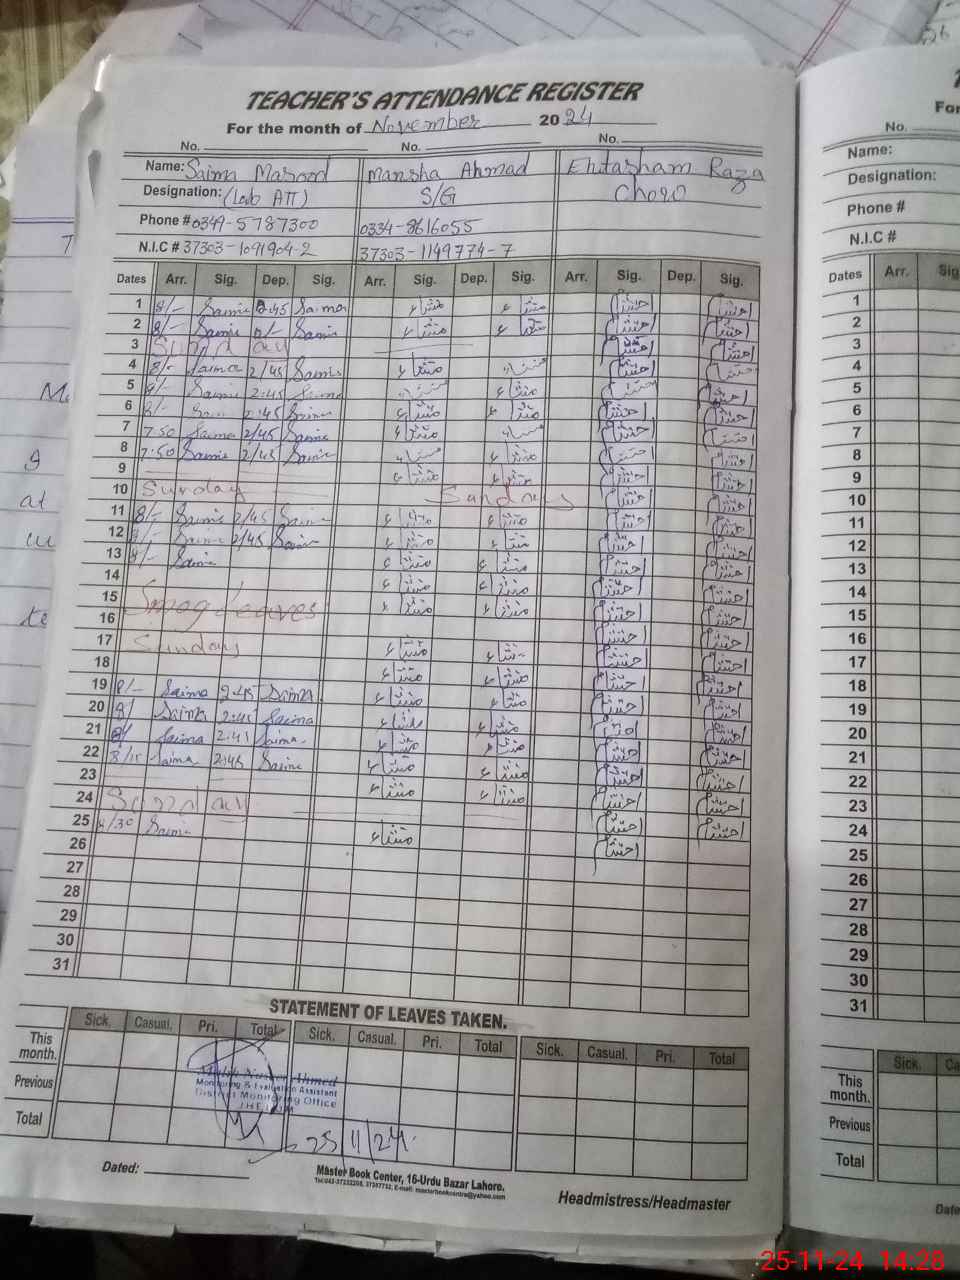 TEACHER'S ATTENDANCE REGISTER
For the month of November 2024
No. No. No.
Name: Saima Masood Mansha Ahmad Ehtasham Raza
Designation: (Lab ATT) S/G
Phone # 0349-5787300 0334-8616055
N.I.C # 37303-1091904-2 37303-1149774-7
Dates Arr. Sig. Dep. Sig. Arr. Sig. Dep. Sig. Arr. Sig. Dep. Sig.
1 8/- Saima 2:45 Saima منشاء منشاء احتشام احتشام
2 8/- Saima Saima منشاء منشاء احتشام احتشام
3 Sunday احتشام احتشام
4 8/- Saima 2/45 Saima منشاء منشاء احتشام احتشام
5 8/- Saima 2:45 Saima منشاء منشاء احتشام احتشام
6 8/- Saima 2:45 Saima منشاء منشاء احتشام احتشام
7 7:50 Saima 2/45 Saima منشاء منشاء احتشام احتشام
8 7:50 Saima 2/45 Saima منشاء منشاء احتشام احتشام
9 منشاء منشاء احتشام احتشام
10 Sunday Sunday احتشام احتشام
11 8/- Saima 2/45 Saima منشاء منشاء احتشام احتشام
12 8/- Saima 2/45 Saima منشاء منشاء احتشام احتشام
13 8/- Saima منشاء منشاء احتشام احتشام
14 منشاء منشاء احتشام احتشام
15 Smog Leaves منشاء منشاء احتشام احتشام
16 احتشام احتشام
17 Sunday منشاء منشاء احتشام احتشام
18 منشاء منشاء احتشام احتشام
19 8/- Saima 2:45 Saima منشاء منشاء احتشام احتشام
20 8/ Saima 2:45 Saima منشاء منشاء احتشام احتشام
21 8/ Saima 2:45 Saima منشاء منشاء احتشام احتشام
22 8/15 Saima 2:45 Saima منشاء منشاء احتشام احتشام
23 منشاء منشاء احتشام احتشام
24 Sunday احتشام احتشام
25 8/30 Saima منشاء احتشام
26
27
28
29
30
31
STATEMENT OF LEAVES TAKEN.
Sick. Casual. Pri. Total Sick. Casual. Pri. Total Sick. Casual. Pri. Total
This month.
Previous
Total
Monitoring & Evaluation Assistant
District Monitoring Office
JHELUM
25/11/24
Dated:
Master Book Center, 16-Urdu Bazar Lahore.
Headmistress/Headmaster
No.
Name:
Designation:
Phone #
N.I.C #
Dates Arr.
1
2
3
4
5
6
7
8
9
10
11
12
13
14
15
16
17
18
19
20
21
22
23
24
25
26
27
28
29
30
31
Sick.
This month.
Previous
Total
25-11-24 14:28